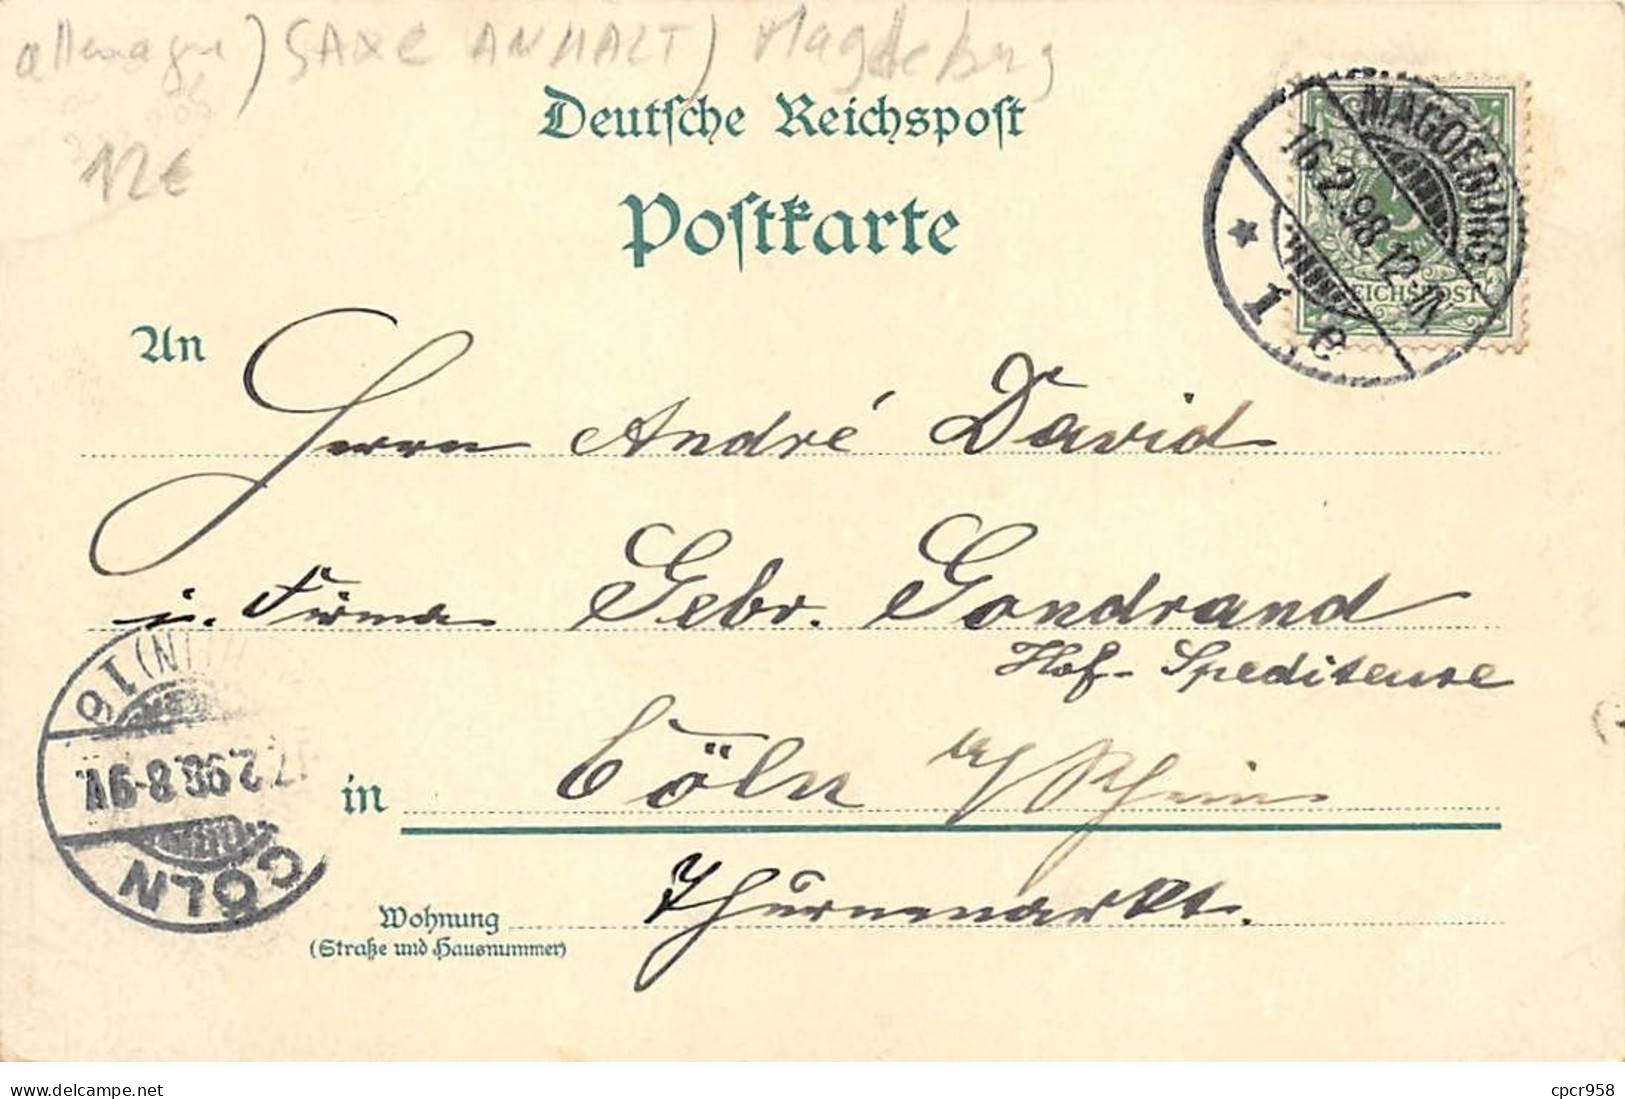 allemagne) SAXE ANHALT) Magdeburg
12€
Deutsche Reichspost
Postkarte
MAGDEBURG
16.2.98.12-1N
* 1 e
REICHSPOST
An
Herrn André David
i. Firma Gebr. Gondrand
Hof-Spediteure
in Cöln a/Rhein
Thürnmarkt.
Wohnung
(Straße und Hausnummer)
17.2.98.8-9V.
CÖLN
cpcr958